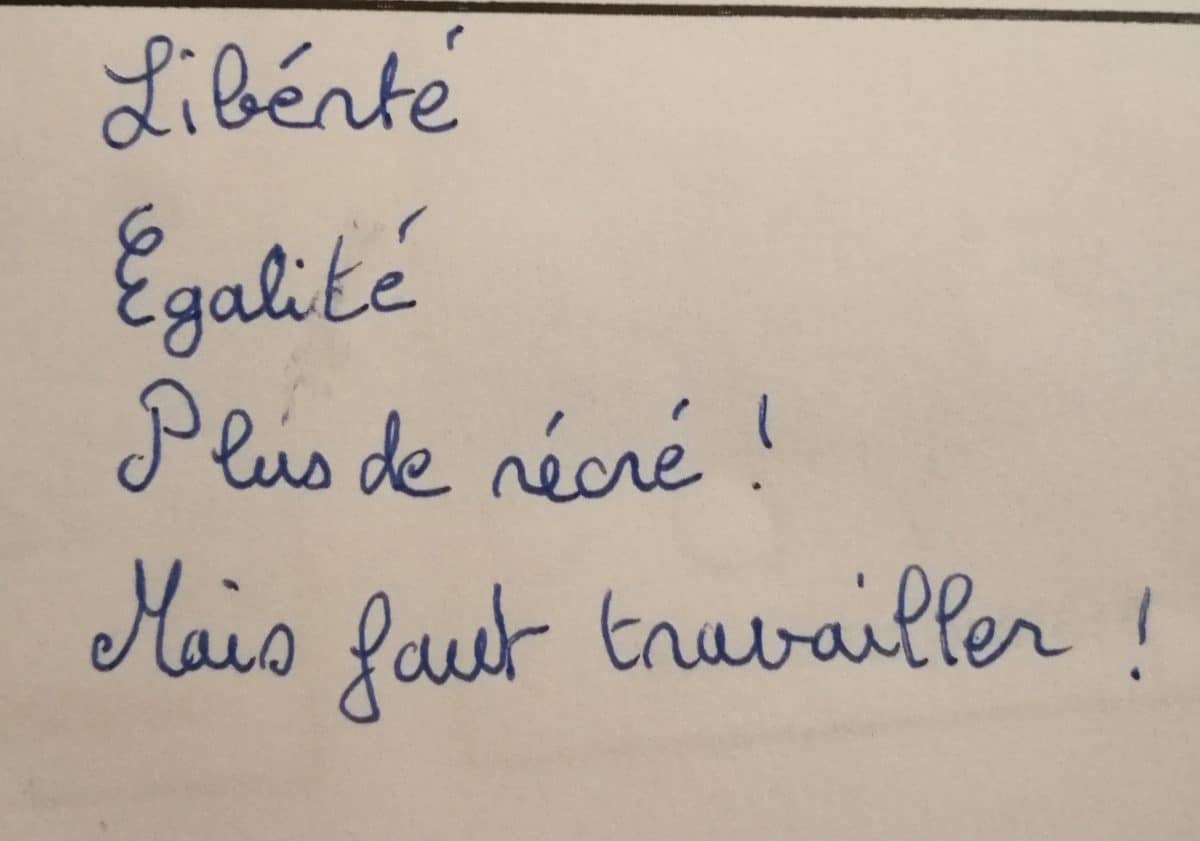 Libérté
Egalité
Plus de récré !
Mais faut travailler !